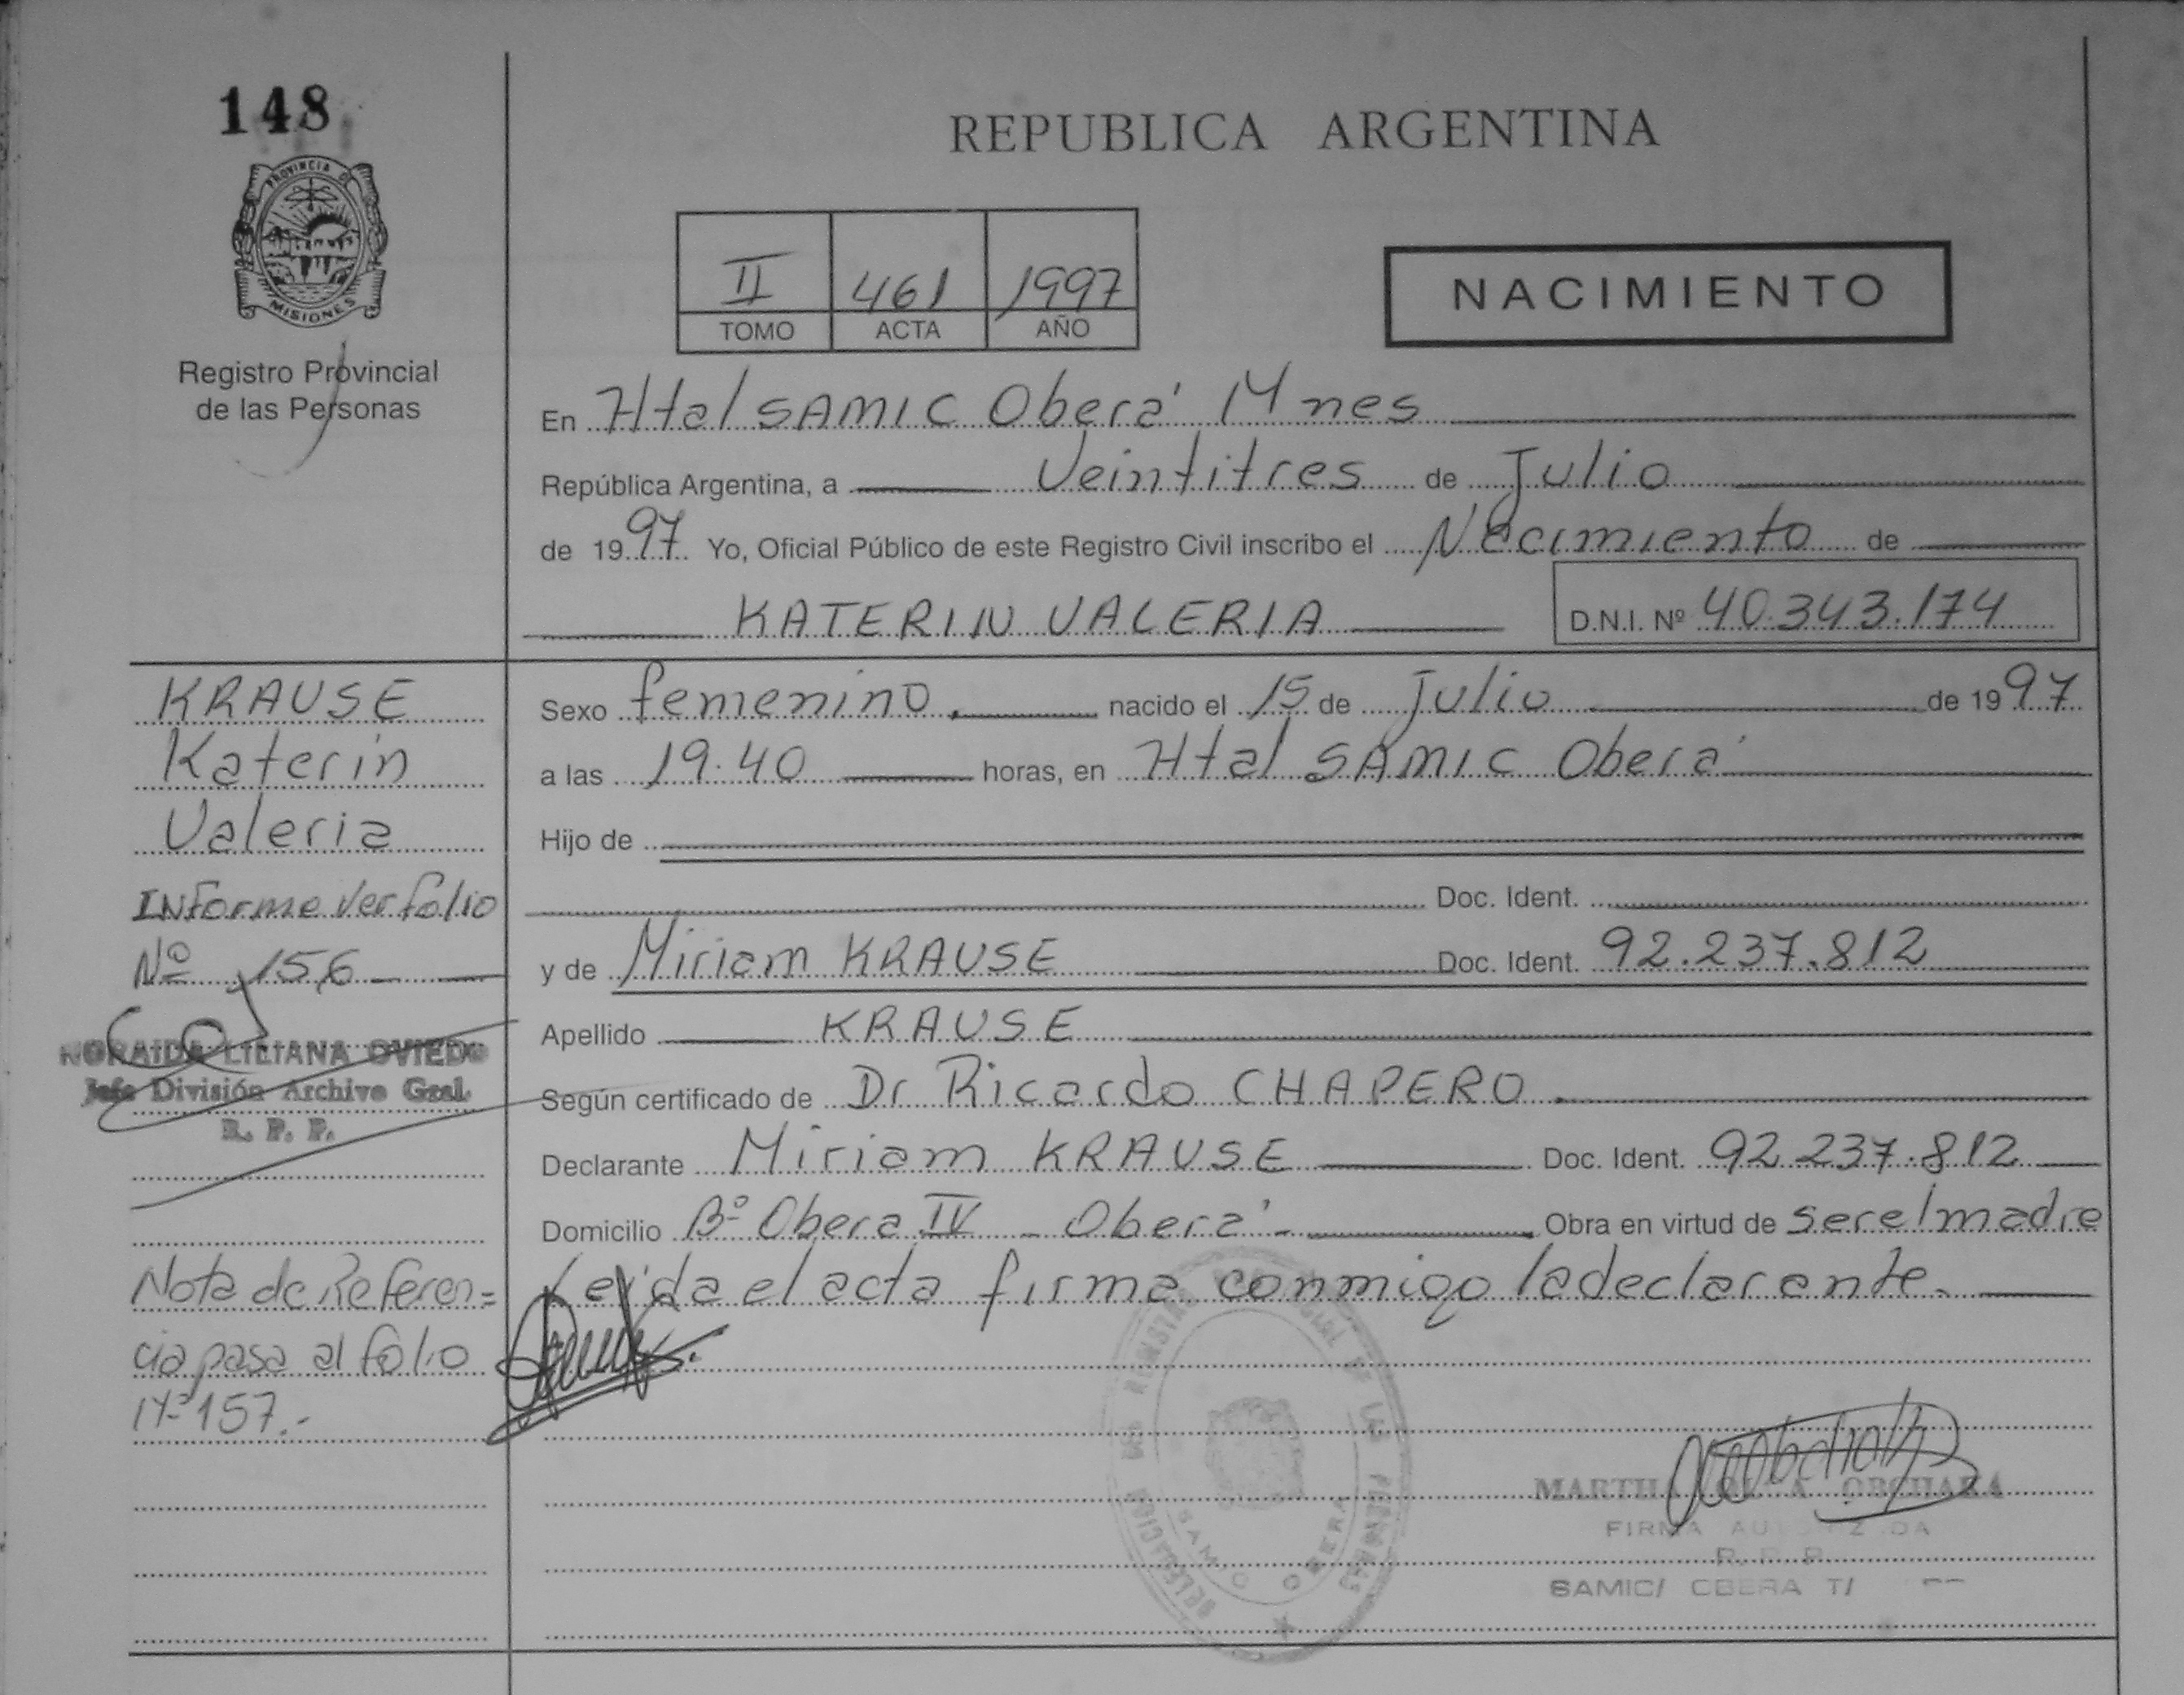 148
PROVINCIA DE
MISIONES
Registro Provincial
de las Personas
REPUBLICA ARGENTINA
II 461 1997
TOMO ACTA AÑO
NACIMIENTO
En Htal SAMIC Oberá Mnes
República Argentina, a Veintitres de Julio
de 1997 Yo, Oficial Público de este Registro Civil inscribo el Nacimiento de
KATERIN VALERIA D.N.I. Nº 40.343.174
KRAUSE
Katerin
Valeria
INforme Ver folio
Nº 156
NORAIDA LILIANA OVIEDO
Jefe División Archivo Gral.
R. P. P.
Nota de Referen=
cia pasa al folio
Nº 157.-
Sexo femenino. nacido el 15 de Julio de 1997
a las 19.40 horas, en Htal SAMIC Oberá
Hijo de
Doc. Ident.
y de Miriam KRAUSE Doc. Ident. 92.237.812
Apellido KRAUSE
Según certificado de Dr Ricardo CHAPERO.
Declarante Miriam KRAUSE Doc. Ident. 92.237.812
Domicilio Bº Obera IV - Oberá - Obra en virtud de ser el madre
Leída el acta firma conmigo la declarante.
DELEGACION DEL REGISTRO PROVINCIAL DE LAS PERSONAS
SAMIC OBERA
MARTHA OBCHARA
FIRMA AUTORIZADA
R. P. P.
SAMIC/ OBERA